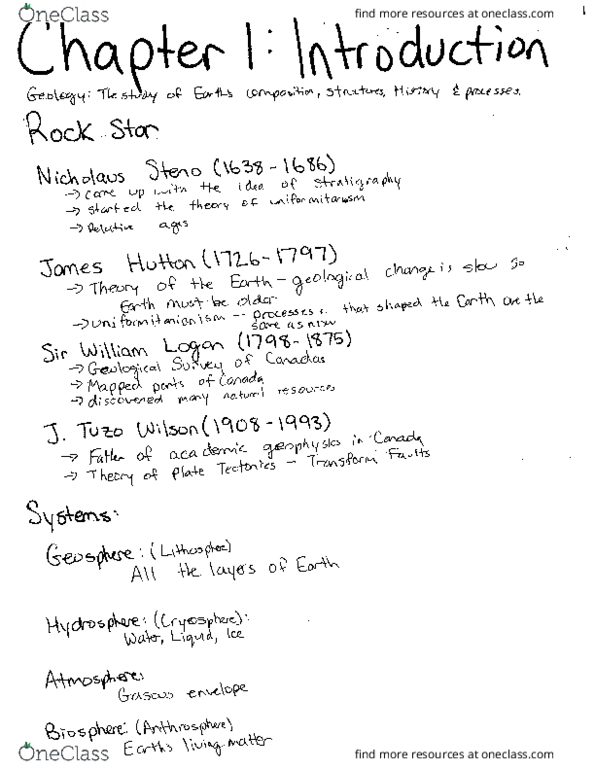 OneClass
find more resources at oneclass.com
1
Chapter 1: Introduction
Geology: The study of Earths composition, structures, History & processes.
Rock Star
Nicholaus Steno (1638-1686)
→ came up with the idea of stratigraphy
→ started the theory of uniformitarism
→ Relative ages
James Hutton (1726-1797)
→ Theory of the Earth - geological change is slow so
Earth must be older
→ uniformitarianism -- processes that shaped the Earth are the
same as now
Sir William Logan (1798-1875)
→ Geological Survey of Canadas
→ Mapped parts of Canada
→ discovered many naturl resources
J. Tuzo Wilson (1908-1993)
→ Father of academic geophysics in Canada
→ Theory of Plate Tectonics - Transform Faults
Systems:
Geosphere: (Lithosphere)
All the layers of Earth
Hydrosphere: (Cryosphere):
Water, Liquid, Ice
Atmosphere:
Gaseous envelope
Biosphere: (Anthrosphere)
Earths living matter
OneClass
find more resources at oneclass.com